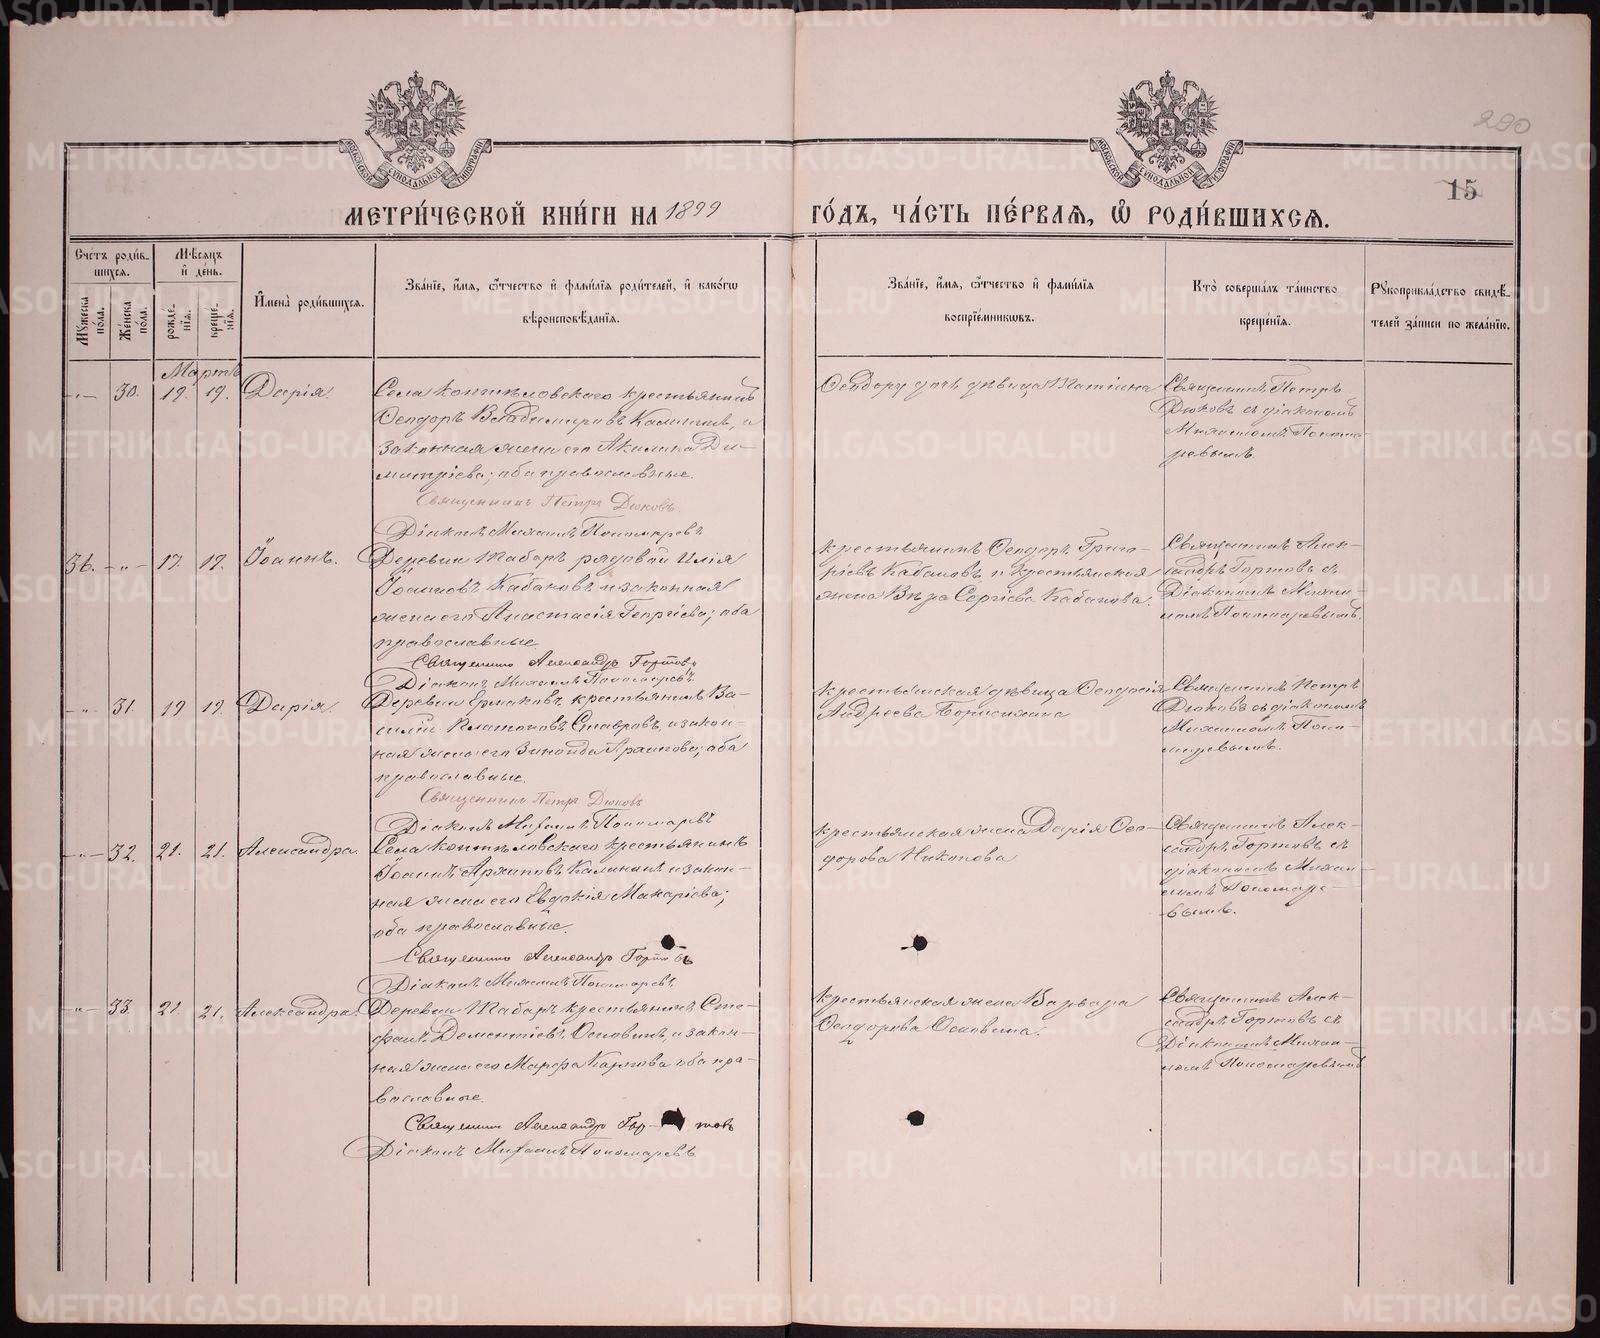 290
15
МОСКОВСКОЙ СѴНОДАЛЬНОЙ ТИПОГРАФІИ
МОСКОВСКОЙ СѴНОДАЛЬНОЙ ТИПОГРАФІИ
МЕТРИ́ЧЕСКОЙ КНИ́ГИ НА 1899 ГО́ДЪ, ЧА́СТЬ ПЕ́РВАѦ, Ѽ РОДИ́ВШИХСѦ.
Сче́тъ роди́вшихсѧ.
Мꙋжеска по́ла.
Же́нска по́ла.
Мѣ́сѧцъ и҆ де́нь.
рожде́нїѧ.
креще́нїѧ.
И҆мена̀ роди́вшихсѧ.
Зва́нїе, и҆́мѧ, ѻ҆́тчество и҆ фами́лїѧ роди́телей, и҆ како́гѡ
вѣроисповѣ́данїѧ.
Зва́нїе, и҆́мѧ, ѻ҆́тчество и҆ фами́лїѧ
воспрїе́мникѡвъ.
Кто̀ соверша́лъ та́инство
креще́нїѧ.
Рꙋкоприкла́дство свидѣ́-
телей за́писи по жела́нїю.
Мартъ
-"- 30. 19. 19. Дарія.
Села Коптѣловскаго крестьянинъ
Ѳеодоръ Владимировъ Калининъ, и
законная жена его Акилина Ди-
митріева; оба православные.
Священникъ Петръ Дюковъ.
Діаконъ Михаилъ Пономаревъ
дѣвица
Священникъ Петръ
Дюковъ съ діакономъ
Михаиломъ Понома-
ревымъ.
36. -"- 17. 17. Іоаннъ.
Деревни Таборъ рядовой Илія
Іоанновъ Кабаковъ и законная
жена его Анастасія Георгіева; оба
православные.
Священникъ Александръ Гортовъ
Діаконъ Михаилъ Пономаревъ
крестьянинъ Ѳеодоръ Григо-
ріевъ Кабаковъ и крестьянская
жена Вѣра Сергіева Кабакова.
Священникъ Алек-
сандръ Гортовъ съ
Діакономъ Михаи-
ломъ Пономаревымъ.
-"- 31. 19 19. Дарія
Деревни Ермаковъ крестьянинъ Ва-
силій Платоновъ Ставровъ, и закон-
ная жена его Зинаида Архипова; оба
православные.
Священникъ Петръ Дюковъ
Діаконъ Михаилъ Пономаревъ
крестьянская дѣвица Ѳеодосія
Андреева
Священникъ Петръ
Дюковъ съ діакономъ
Михаиломъ Поно-
маревымъ.
-"- 32. 21. 21. Александра.
Села Коптѣловскаго крестьянинъ
Іоаннъ Архиповъ Калининъ и закон-
ная жена его Евдокія Макаріева;
оба православные.
Священникъ Александръ Гортовъ
Діаконъ Михаилъ Пономаревъ
крестьянская жена Дарія Ѳео-
дорова Никонова
Священникъ Алек-
сандръ Гортовъ съ
діакономъ Михаи-
ломъ Пономаре-
вымъ.
-"- 33. 21. 21. Александра.
Деревни Таборъ крестьянинъ Сте-
фанъ Дементіевъ Осовинъ, и закон-
ная жена его Марѳа Карпова оба пра-
вославные.
Священникъ Александръ Гор-товъ
Діаконъ Михаилъ Пономаревъ
крестьянская жена Варвара
Ѳеодорова Осовина.
Священникъ Алек-
сандръ Гортовъ съ
Діакономъ Михаи-
ломъ Пономаревымъ
METRIKI.GASO-URAL.RU